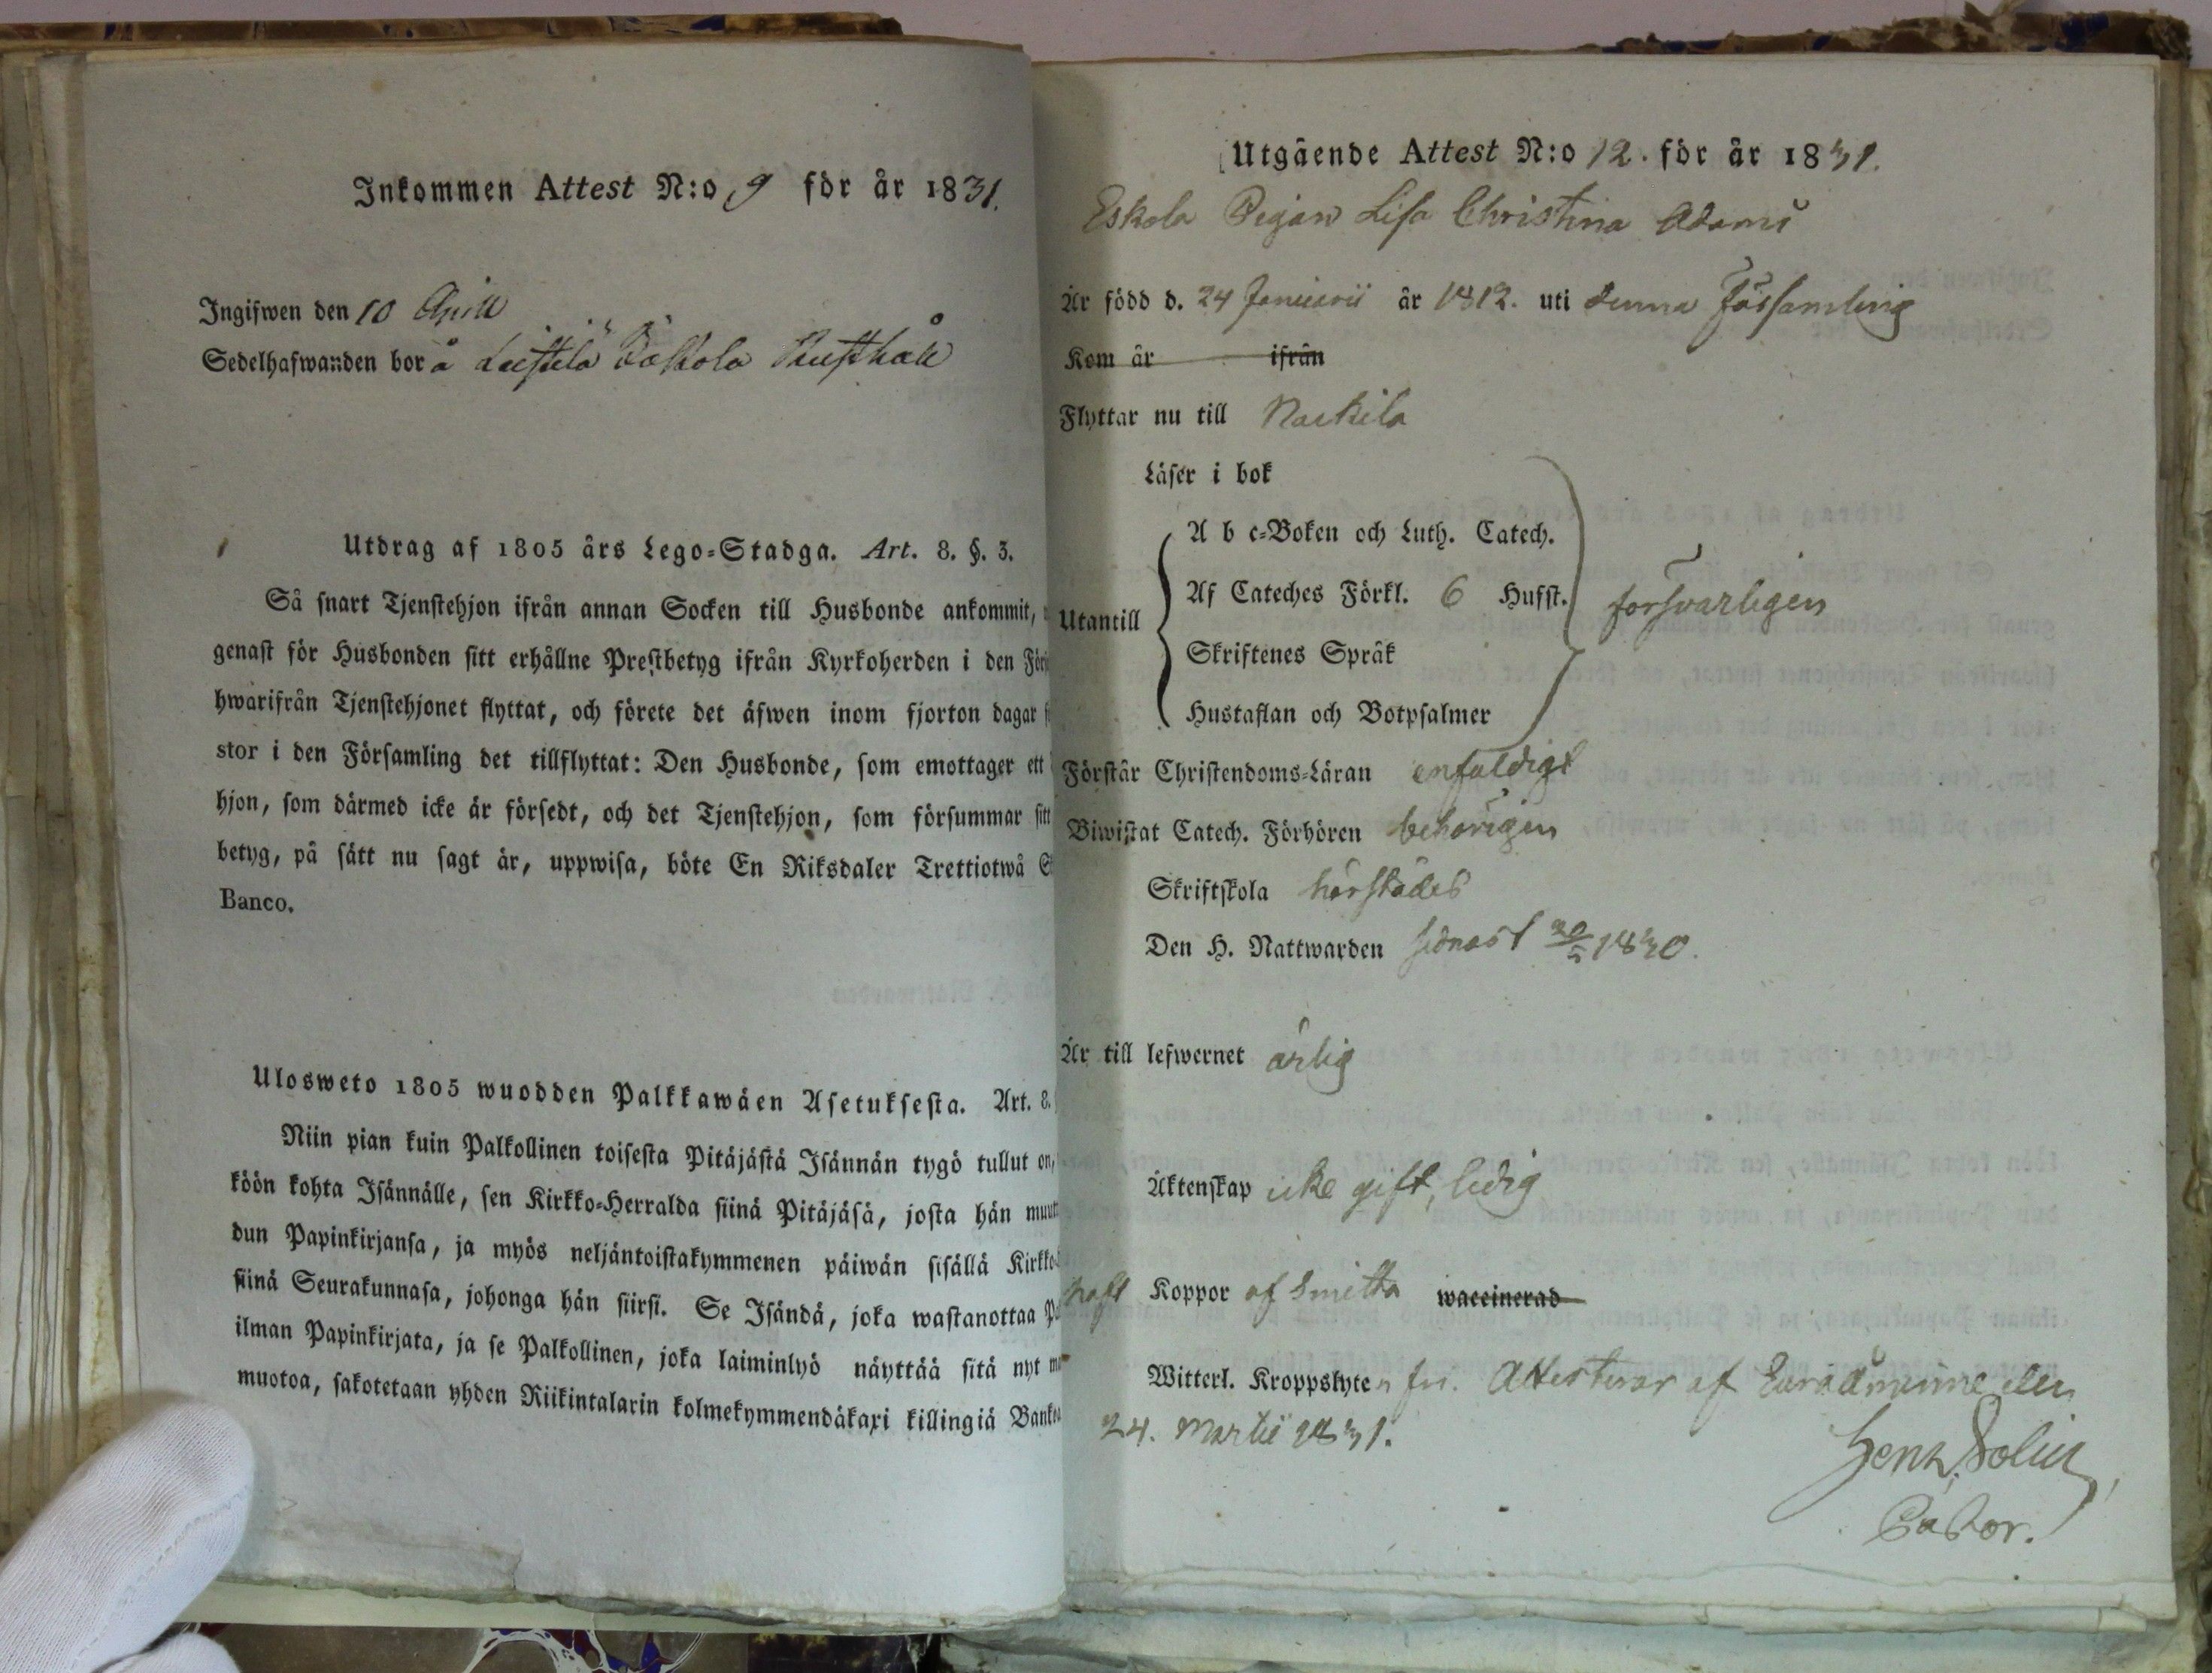 Inkommen Attest N:o 9 för år 1831.
Ingifwen den 10 Aprill
Sedelhafwanden bor å Leistilä Rusthåll
Utdrag af 1805 års Lego-Stadga. Art. 8. §. 3.
Så snart Tjenstehjon ifrån annan Socken till Husbonde ankommit,
genast för Husbonden sitt erhållne Prestbetyg ifrån Kyrkoherden i den För
hwarifrån Tjenstehjonet flyttat, och förete det äfwen inom fjorton dagar
stor i den Församling det tillflyttat: Den Husbonde, som emottager ett
hjon, som därmed icke är försedt, och det Tjenstehjon, som försummar sitt
betyg, på sätt nu sagt är, uppwisa, böte En Riksdaler Trettiotwå
Banco.
Ulosweto 1805 wuodden Palkkawäen Asetuksesta. Art. 8.
Niin pian kuin Palkollinen toisesta Pitäjästä Isännän tygö tullut on,
köön kohta Isännälle, sen Kirkko-Herralda siinä Pitäjäsä, josta hän muut
dun Papinkirjansa, ja myös neljäntoistakymmenen päiwän sisällä Kirkko
siinä Seurakunnasa, johonga hän siirsi. Se Isändä, joka wastanottaa
ilman Papinkirjata, ja se Palkollinen, joka laiminlyö näyttää sitä nyt
muotoa, sakotetaan yhden Riikintalarin kolmekymmendäkaxi killingiä Banko
Utgående Attest N:o 12. för år 1831.
Eskola Pigan Lisa Christina Adams
Är född d. 24 Januarii år 1812. uti denna Församling
Kom år ifrån
Flyttar nu till Nackila
Läser i bok
Utantill
A b c-Boken och Luth. Catech.
Af Cateches Förkl. 6 Hufst.
försvarligen
Skriftenes Språk
Hustaflan och Botpsalmer
Förstår Christendoms-Läran enfaldigt
Biwistat Catech. Förhören behörigen
Skriftskola härstädes
Den H. Nattwarden sednast 30/5 1830.
Är till lefwernet ärlig
Äktenskap icke gift, ledig
haft Koppor af Smitta waccinerad
Witterl. Kroppslyten fri. Attesterar af Euraåminne den
24. Martii 1831.
Henr. Polin
Pastor.